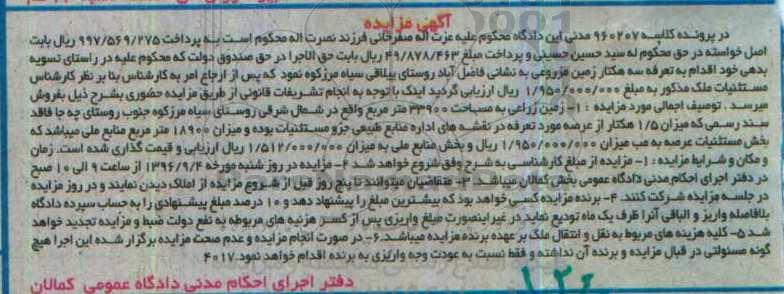 آگهی مزایده
در پرونده کلاسه ۹۶۰۲۰۷ مدنی این دادگاه محکوم علیه عزت اله صفرخانی فرزند نصرت اله محکوم است به پرداخت ۹۹۷/۵۶۹/۲۷۵ ریال بابت
اصل خواسته در حق محکوم له سید حسین حسینی و پرداخت مبلغ ۴۹/۸۷۸/۴۶۳ ریال بابت حق الاجرا در حق صندوق دولت که محکوم علیه در راستای تسویه
بدهی خود اقدام به تعرفه سه هکتار زمین مزروعی به نشانی فاضل آباد روستای ییلاقی سیاه مرزکوه نمود که پس از ارجاع امر به کارشناس بنا بر نظر کارشناس
مستثنیات ملک مذکور به مبلغ ۱/۹۵۰/۰۰۰/۰۰۰ ریال ارزیابی گردید اینک با توجه به انجام تشریفات قانونی از طریق مزایده حضوری بشرح ذیل بفروش
میرسد . توصیف اجمالی مورد مزایده : ۱- زمین زراعی به مساحت ۳۳۹۰۰ متر مربع واقع در شمال شرقی روستای سیاه مرزکوه جنوب روستای چه جا فاقد
سند رسمی که میزان ۱/۵ هکتار از عرصه مورد تعرفه در نقشه های اداره منابع طبیعی جزو مستثنیات بوده و میزان ۱۸۹۰۰ متر مربع منابع ملی میباشد که
بخش مستثنیات عرصه به میزان ۱/۹۵۰/۰۰۰/۰۰۰ ریال و بخش منابع ملی به میزان ۱/۵۱۲/۰۰۰/۰۰۰ ریال ارزیابی و قیمت گذاری شده است. زمان
و مکان و شرایط مزایده : ۱- مزایده از مبلغ کارشناسی به شرح وفق شروع خواهد شد ۲- مزایده در روز شنبه مورخه ۱۳۹۶/۹/۴ از ساعت ۹ الی ۱۰ صبح
در دفتر اجرای احکام مدنی دادگاه عمومی بخش کمالان میباشد. ۳- متقاضیان میتوانند تا پنج روز قبل از شروع مزایده از املاک دیدن نمایند و در روز مزایده
در جلسه مزایده شرکت کنند. ۴- برنده مزایده کسی خواهد بود که بیشترین مبلغ را پیشنهاد دهد و ۱۰ درصد مبلغ پیشنهادی را به حساب سپرده دادگاه
بلافاصله واریز و الباقی آنرا ظرف یک ماه تودیع نماید در غیر اینصورت مبلغ واریزی پس از کسر هزینه های مربوطه به نفع دولت ضبط و مزایده تجدید خواهد
شد ۵- کلیه هزینه های مربوط به نقل و انتقال ملک بر عهده برنده مزایده میباشد. ۶- در صورت انجام مزایده و عدم صحت مزایده برگزار شده این اجرا هیچ
گونه مسئولتی در قبال مزایده و برنده آن نداشته و فقط نسبت به عودت وجه واریزی به برنده اقدام خواهد نمود. ۴۰۱۷
دفتر اجرای احکام مدنی دادگاه عمومی کمالان